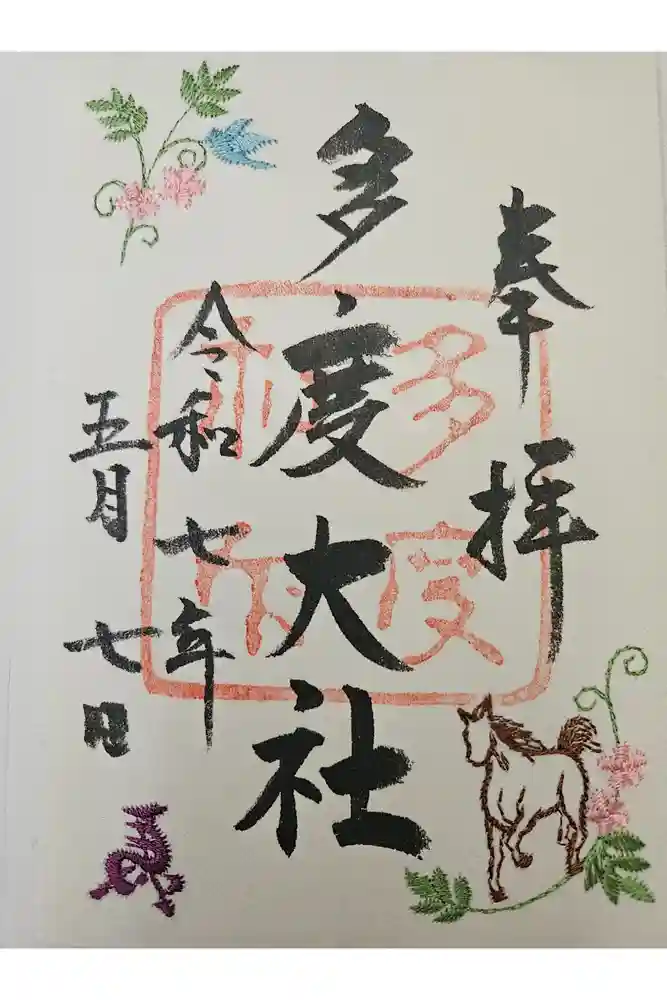 奉拝
多度大社
令和七年
五月七日
多度
神社